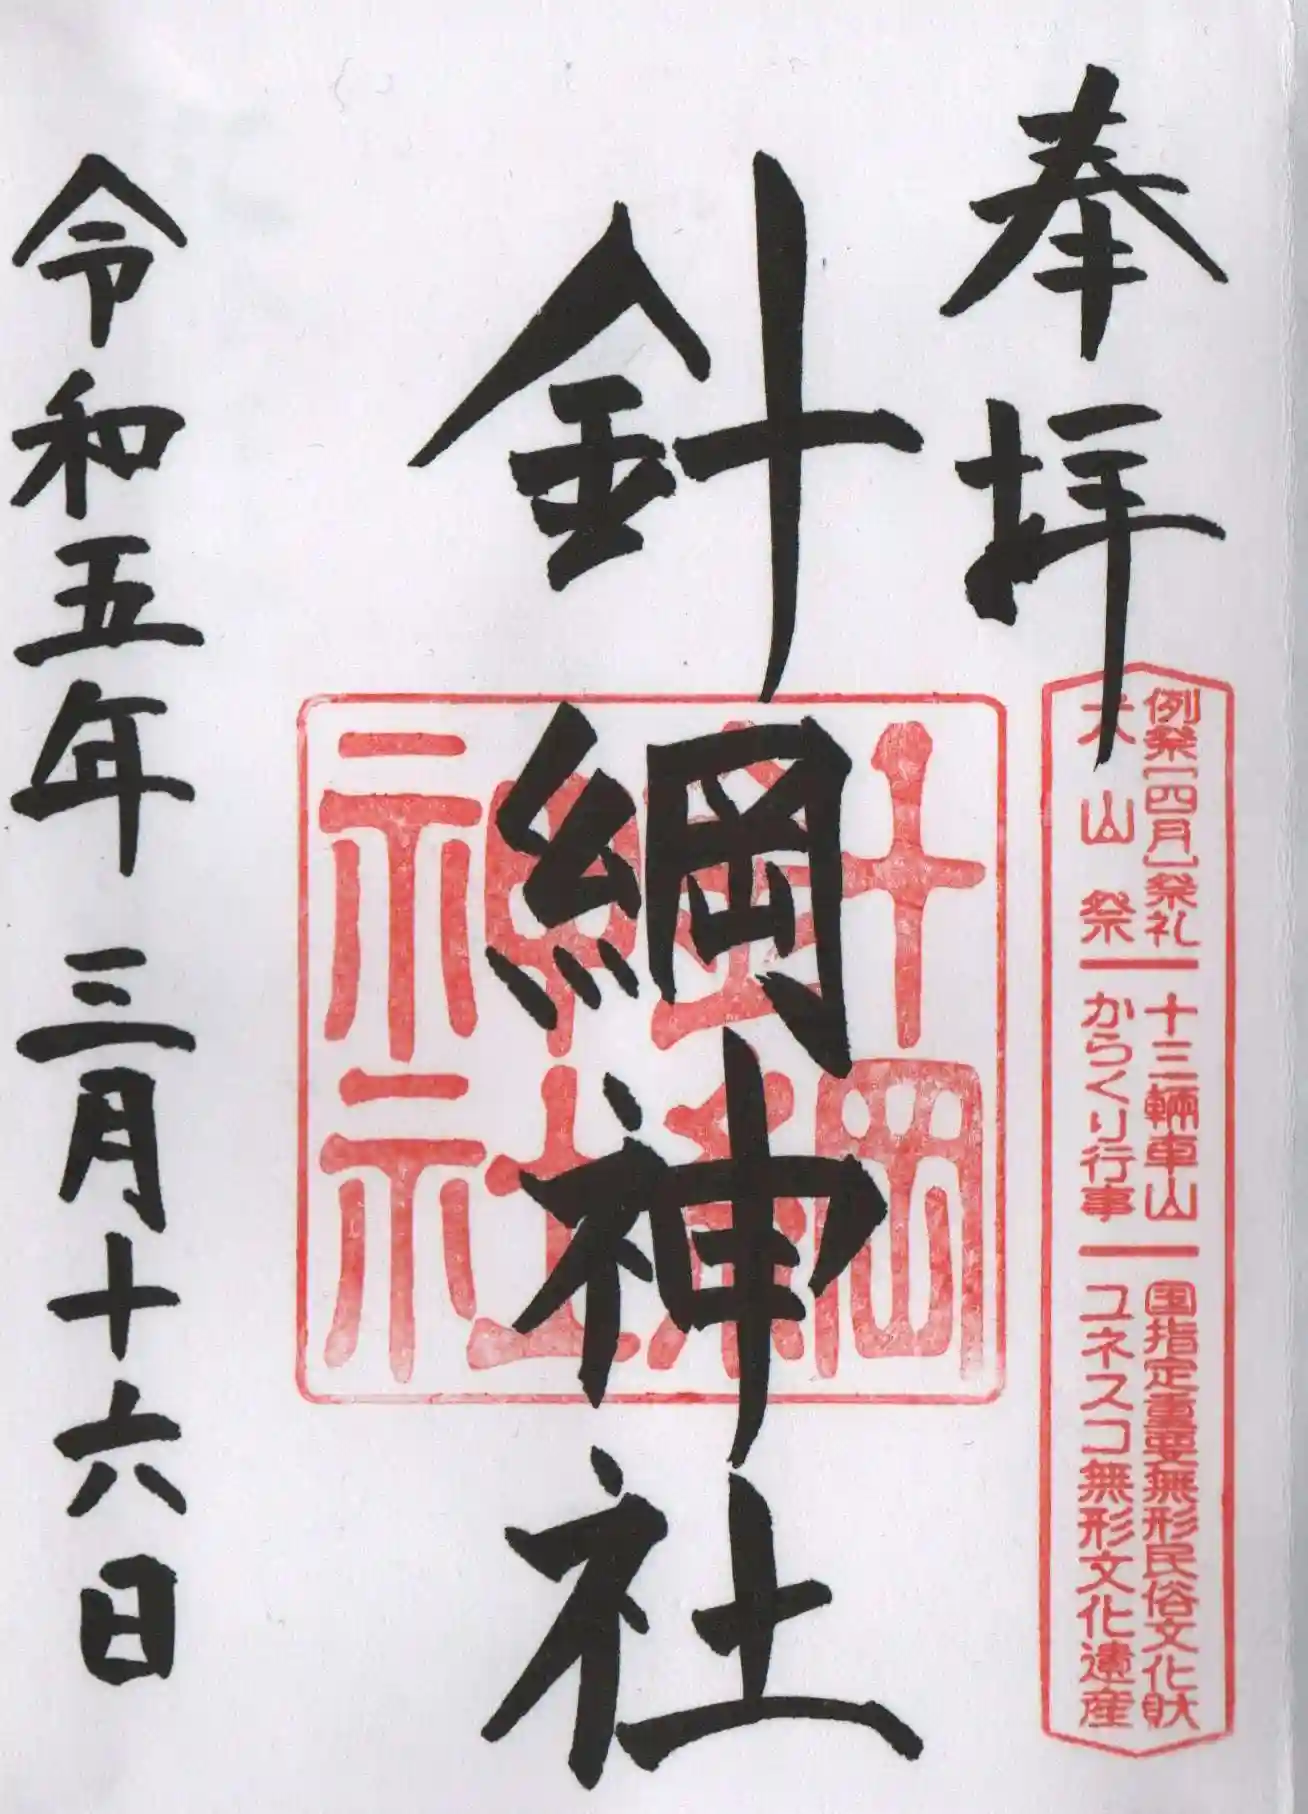 奉拝
例祭［四月］祭礼 十三輛車山 国指定重要無形民俗文化財
犬山祭 からくり行事 ユネスコ無形文化遺産
針綱神社
針綱
神社
令和五年三月十六日